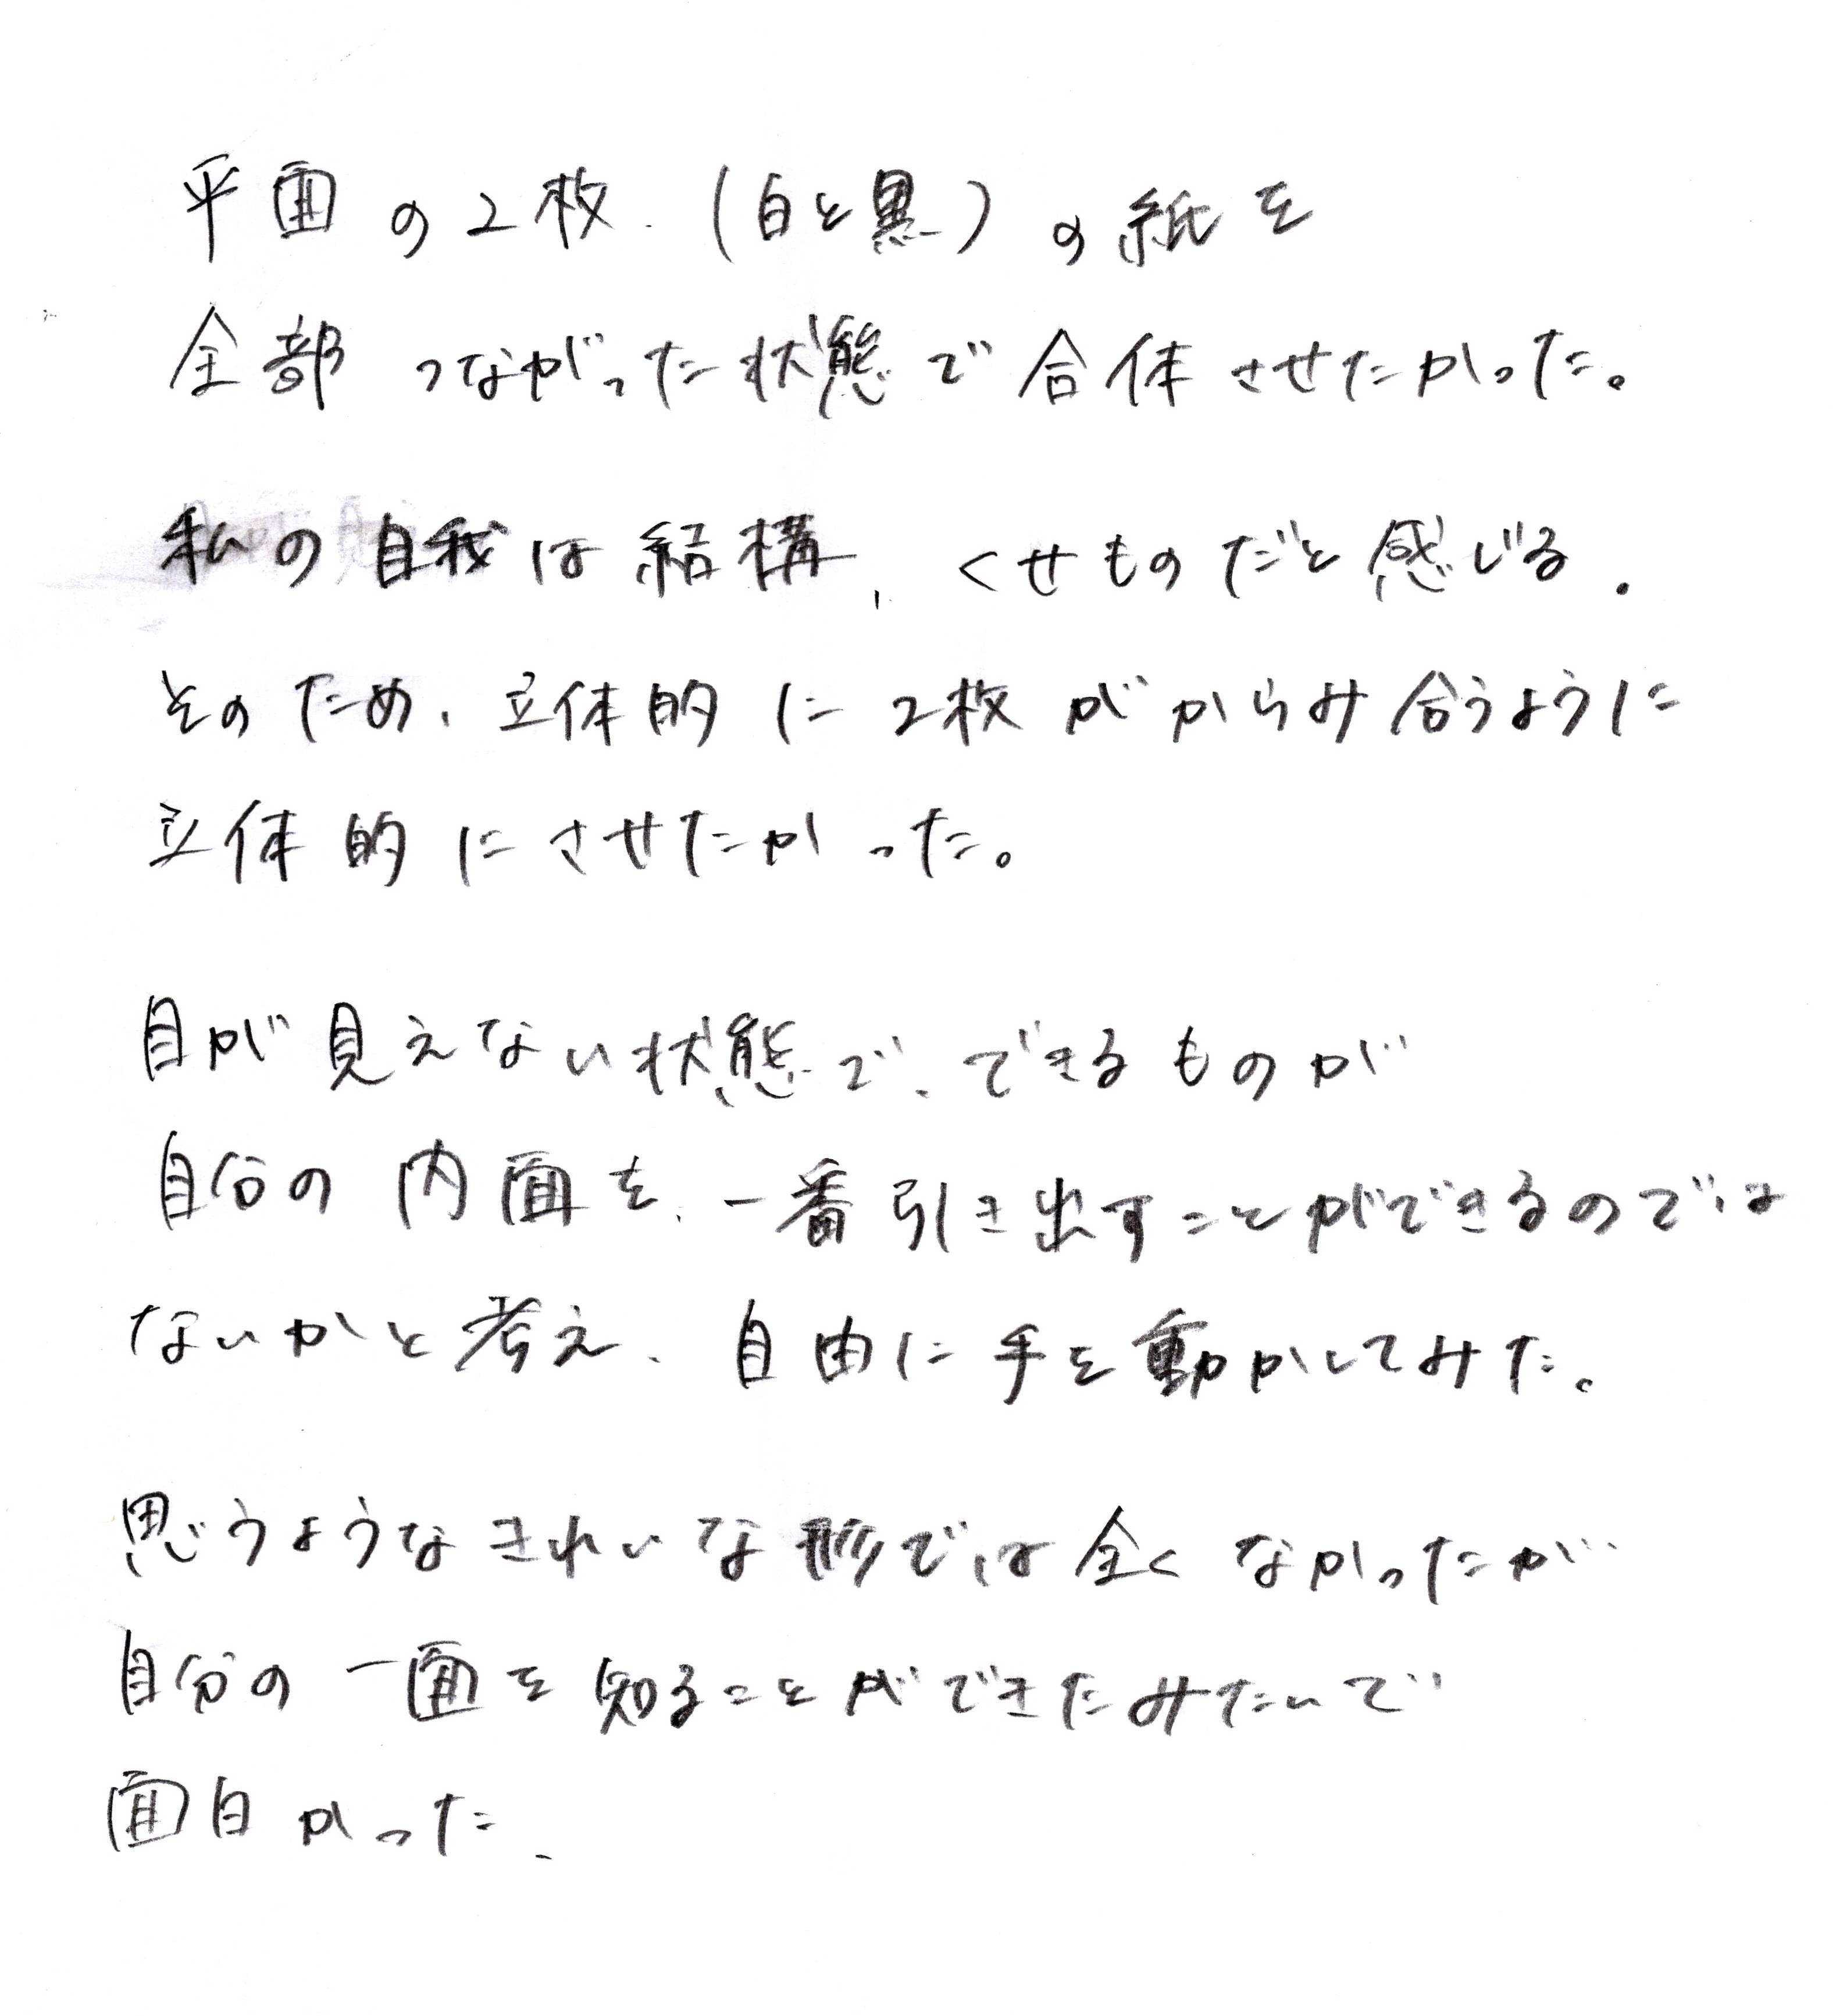 平面の2枚.(白と黒)の紙を
全部つながった状態で合体させたかった。
私の自我は結構、くせものだと感じる.
そのため、立体的に2枚がからみ合うように
立体的にさせたかった。
目が見えない状態で、できるものが
自分の内面を、一番引き出すことができるのでは
ないかと考え、自由に手を動かしてみた。
思うようなきれいな形では全くなかったが
自分の一面を知ることができたみたいで
面白かった.